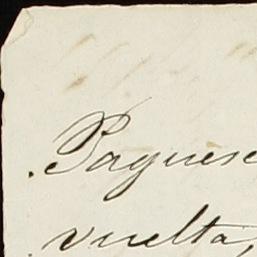 Paguese
vuelta,